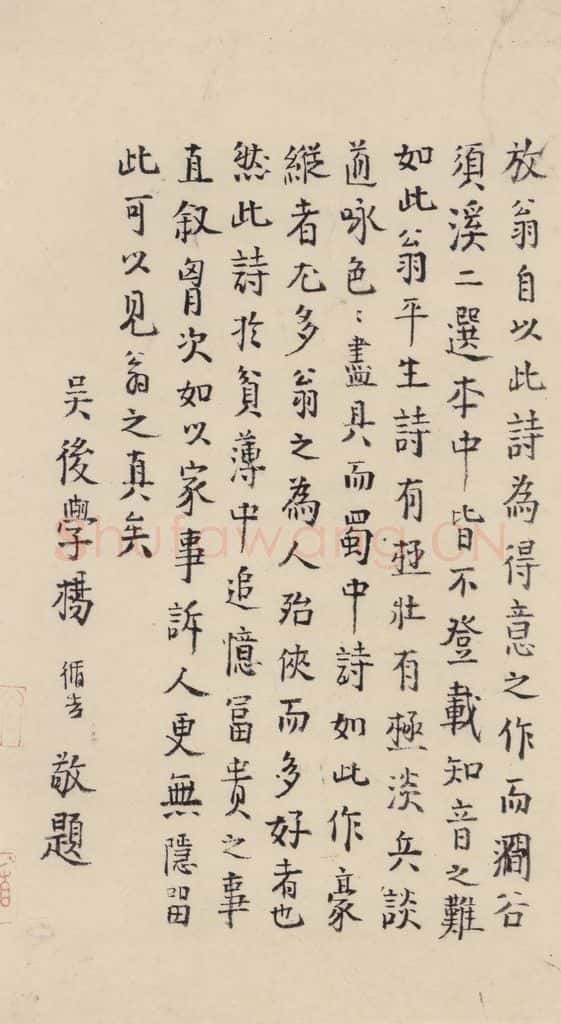 放翁自以此詩為得意之作而澗谷
須溪二選本中皆不登載知音之難
如此翁平生詩有極壯有極淡兵談
道咏色〻盡具而蜀中詩如此作豪
縱者尤多翁之為人殆俠而多好者也
然此詩於貧薄中追憶冨貴之事
直叙胷次如以家事訴人更無隱留
此可以見翁之真矣
吴後學楊循吉敬題
Shufawang.CN